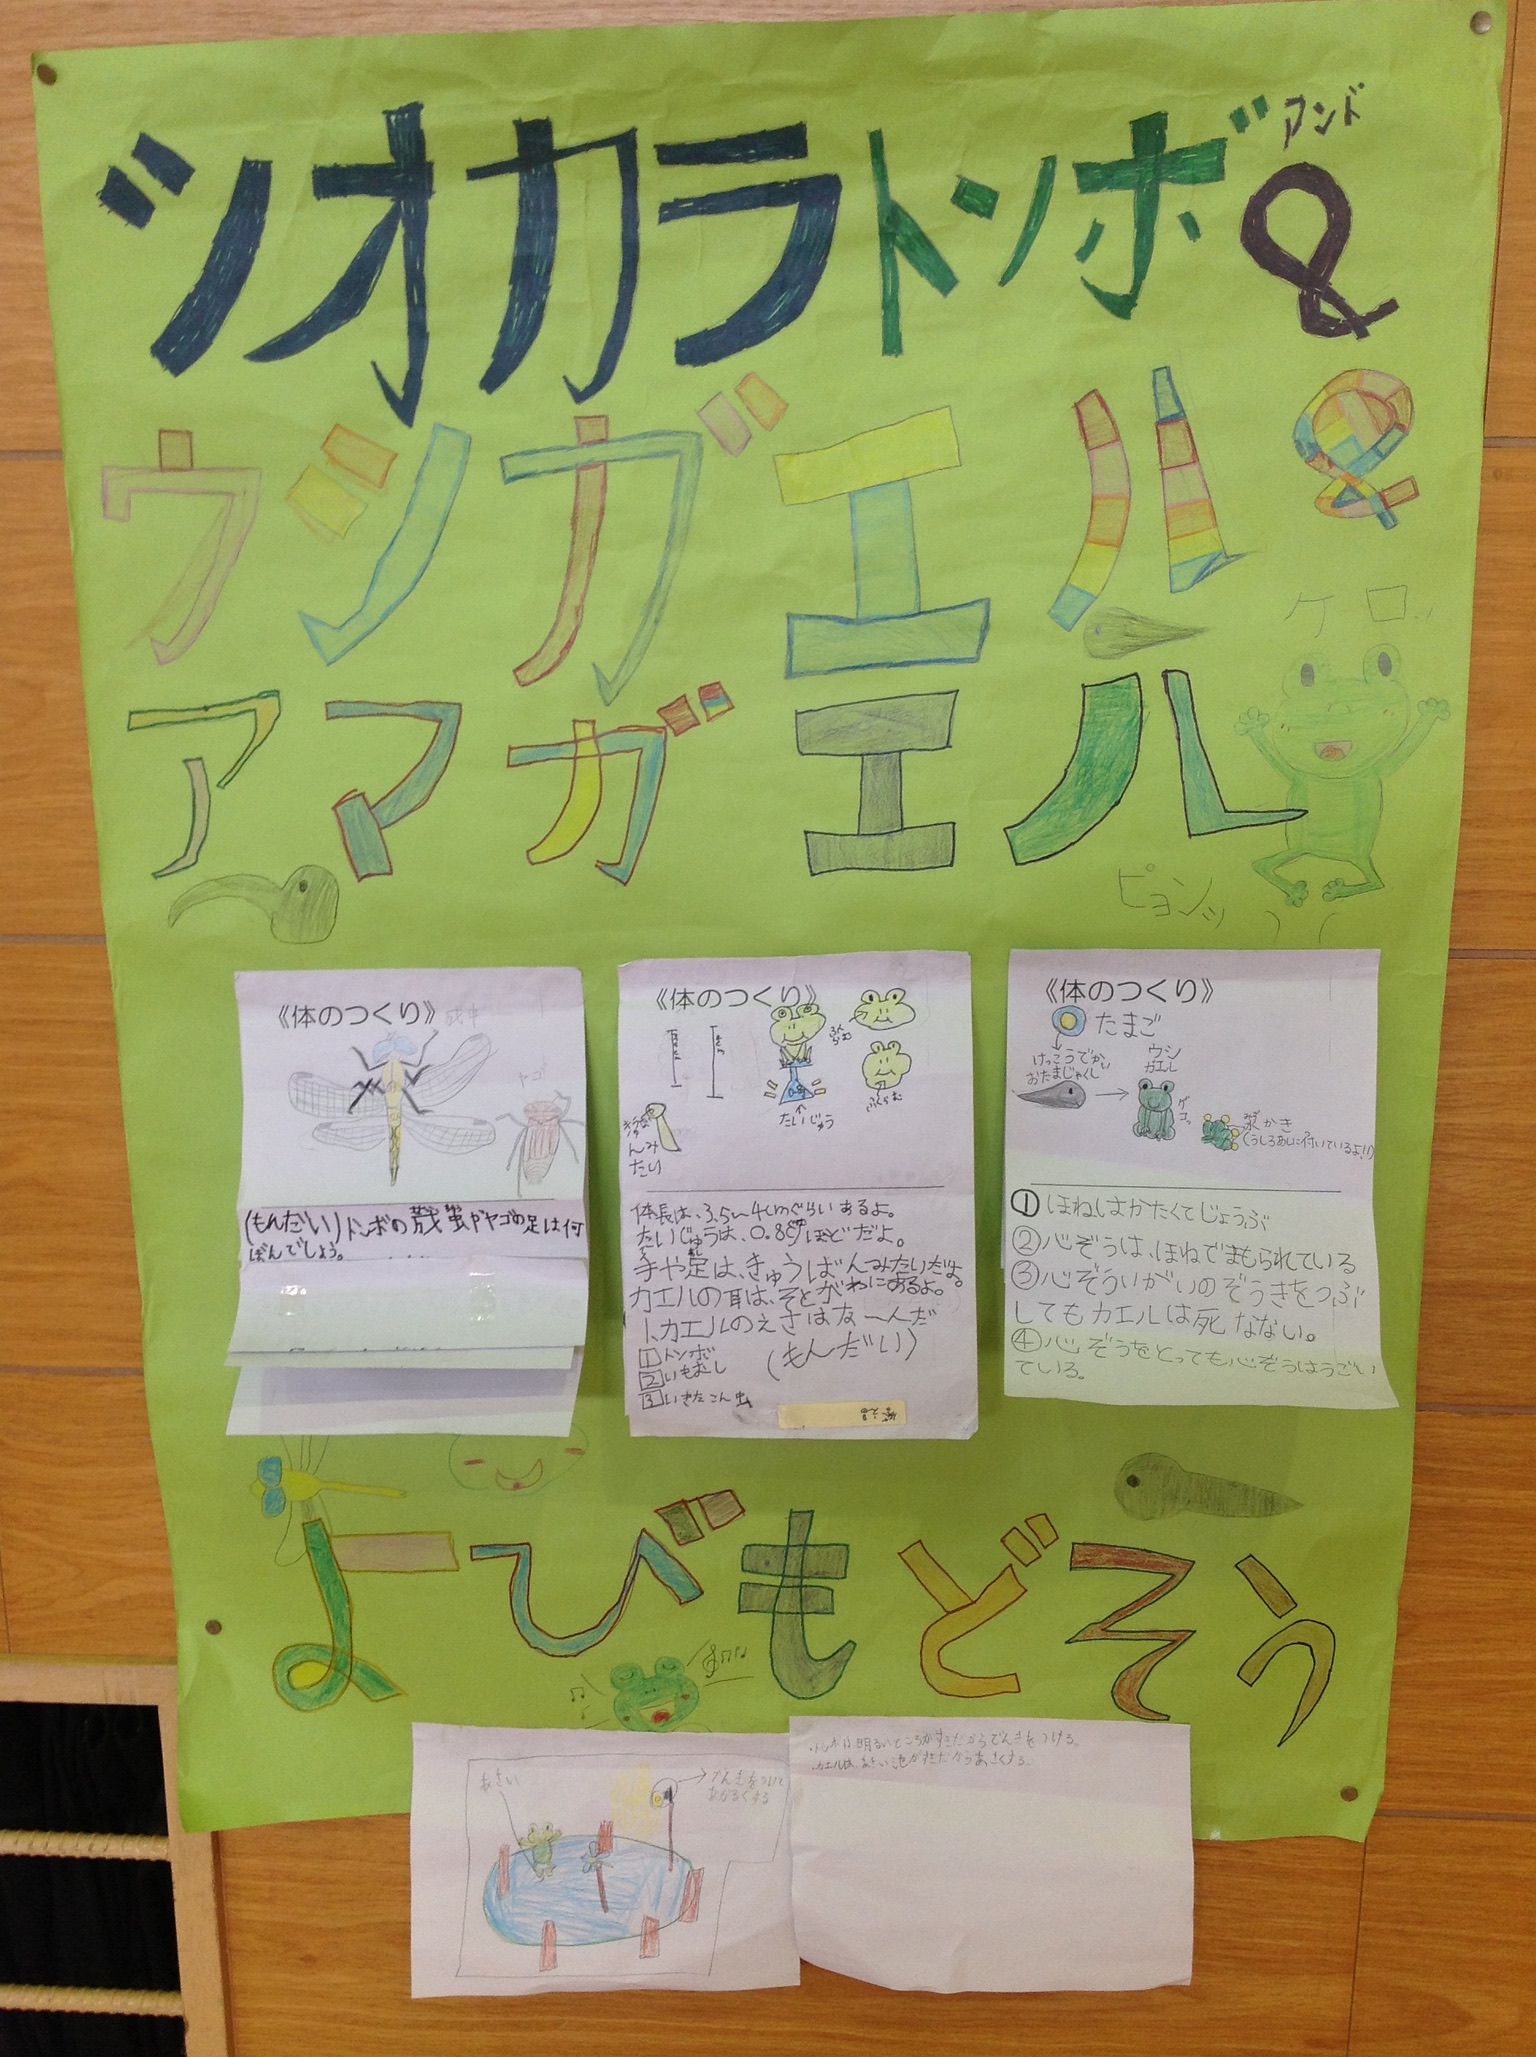 シオカラトンボ&
アンド
ウシガエル&
アマガエル
ケロ..
ピョンッ
《体のつくり》
ヤゴ
(もんだい)トンボの
ヤゴの足は何
ぼんでしょう。
《体のつくり》
ふくらむ
ふくらむ
たいじゅう
きゅうば
んみ
たい
体長は、3.5〜4cmぐらいあるよ。
たいじゅうは、0.8gほどだよ。
手や足は、きゅうばんみたいだよ。
カエルの耳は、そとがわにあるよ。
1、カエルのえさはな〜んだ
(もんだい)
1トンボ
2いもむし
3いきたこん虫
答え
《体のつくり》
たまご
けっこうでかい
おたまじゃくし
ウシ
ガエル
ゲコッ
水かき
(うしろあしに付いているよ!!)
①ほねはかたくてじょうぶ
②心ぞうは、ほねでまもられている
③心ぞういがいのぞうきをつぶ
してもカエルは死なない。
④心ぞうをとっても心ぞうはうごい
ている。
よびもどそう
あさい
でんきをつけて
あかるくする
・トンボは明るいところがすきだからでんきをつける。
・カエルは、あさい池がすきだからあさくする。